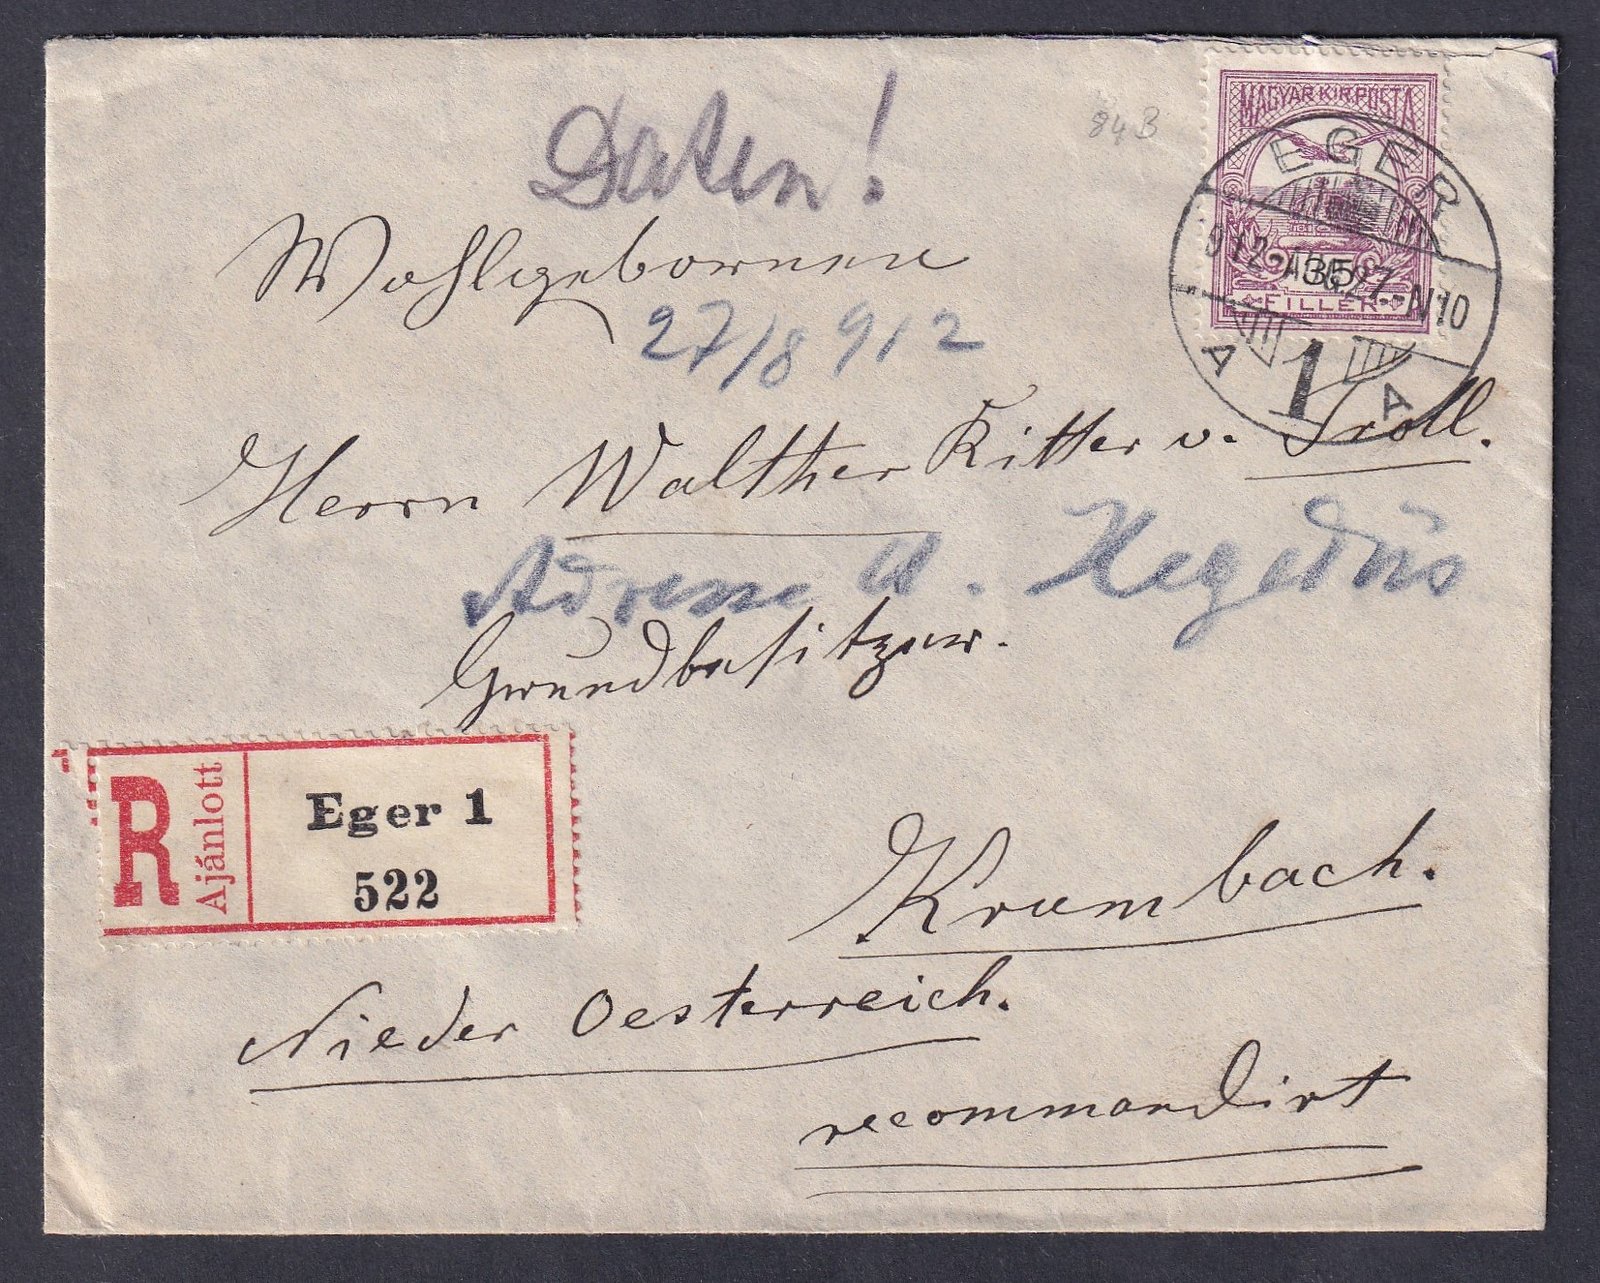 Daten!
84 B
MAGYAR KIR. POSTA
35
FILLÉR
EGER
912 AUG. 27. N10
A 1 A
Wohlgebornen
27/8 912
Herrn Walther Ritter v. Troll.
Adresse u. Hegedüs
Grundbesitzer.
R
Ajánlott
Eger 1
522
Krumbach.
Nieder Oesterreich.
recommandirt